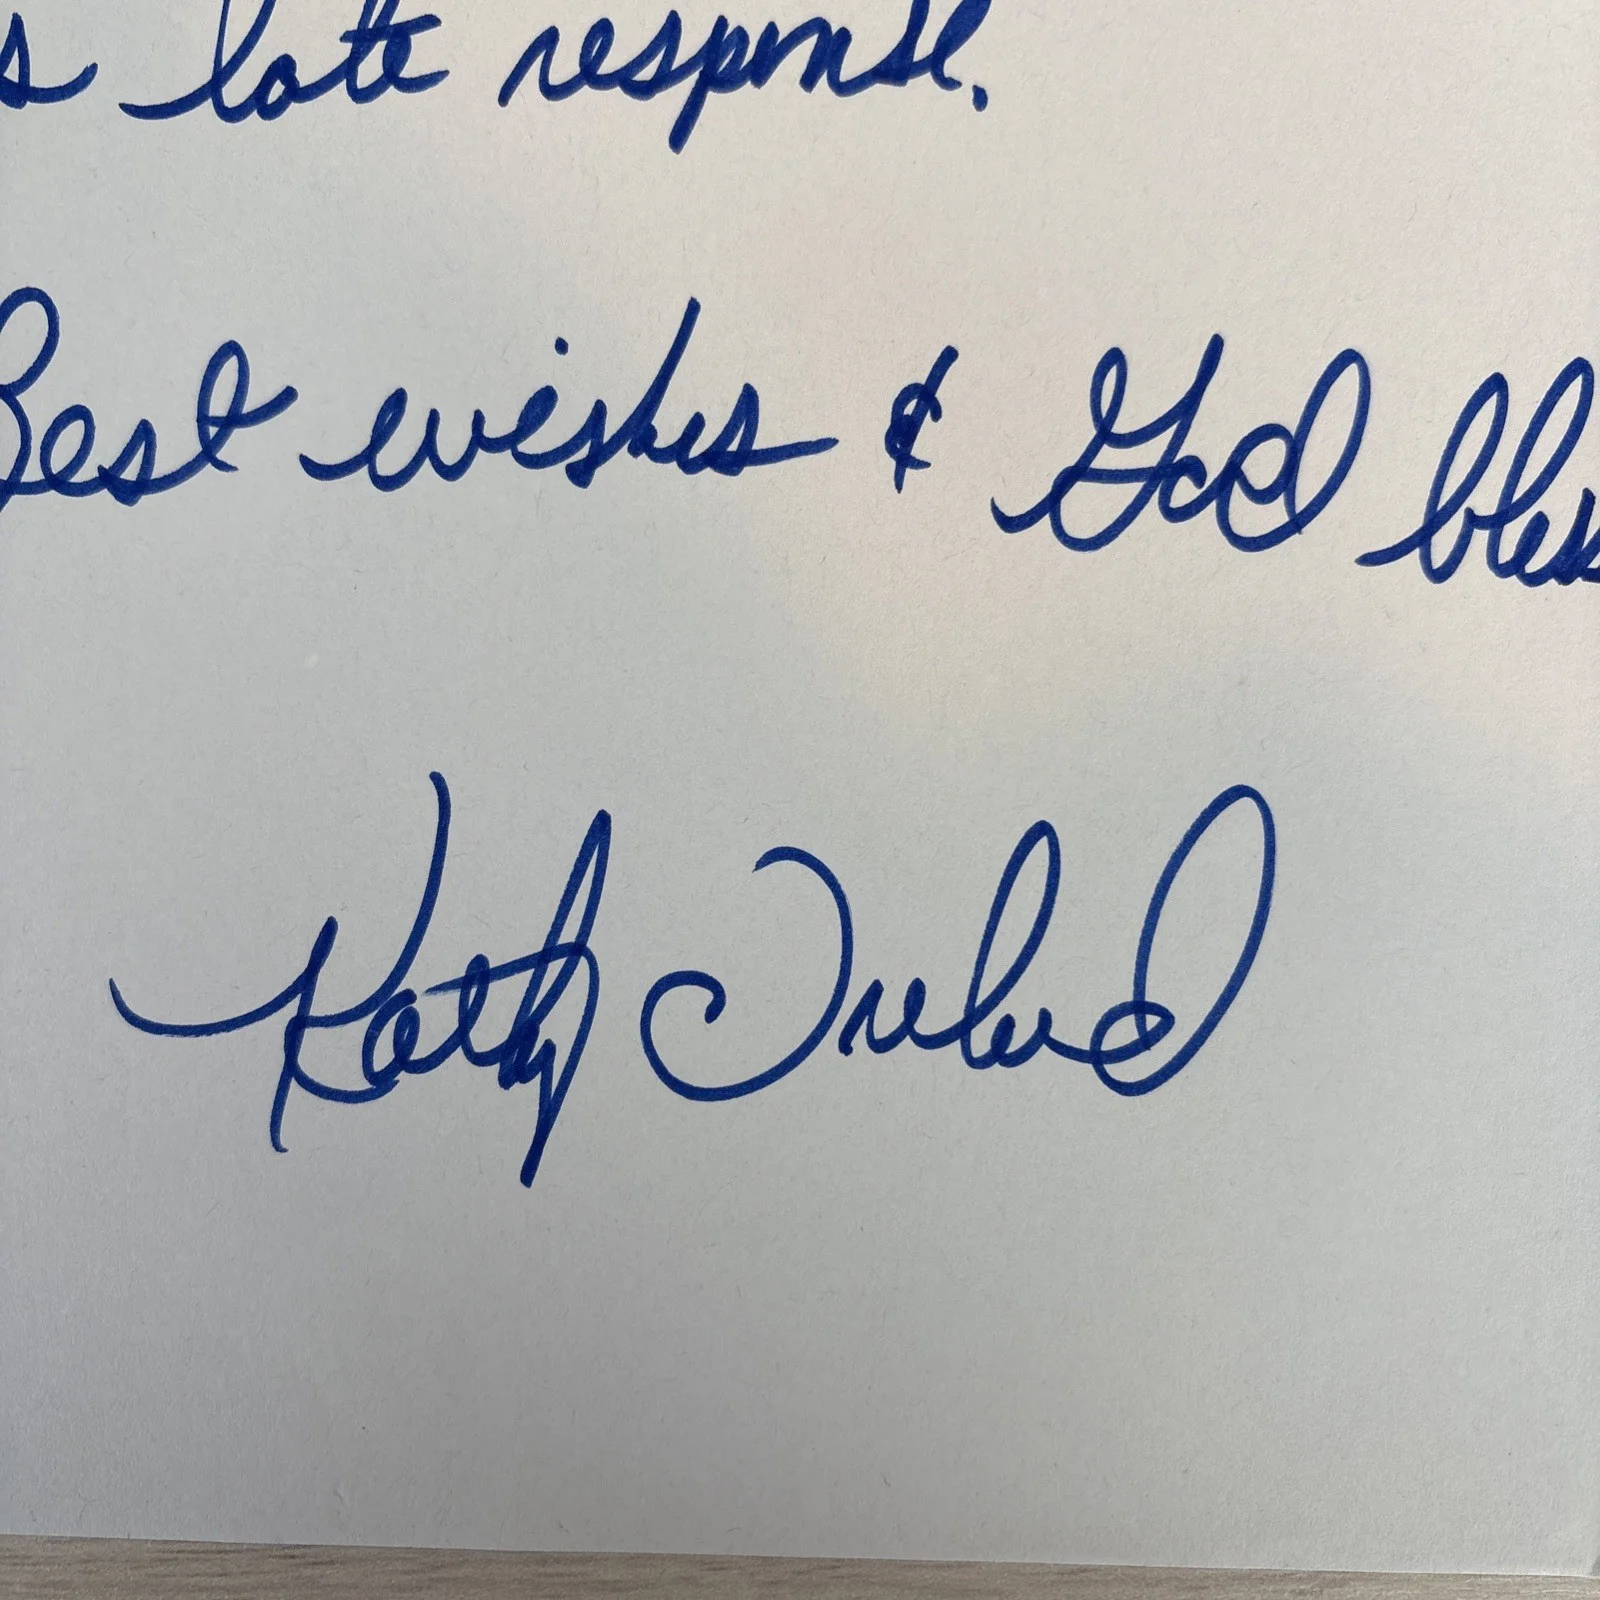 s late response.
Best wishes & God bless
Kathy Ireland